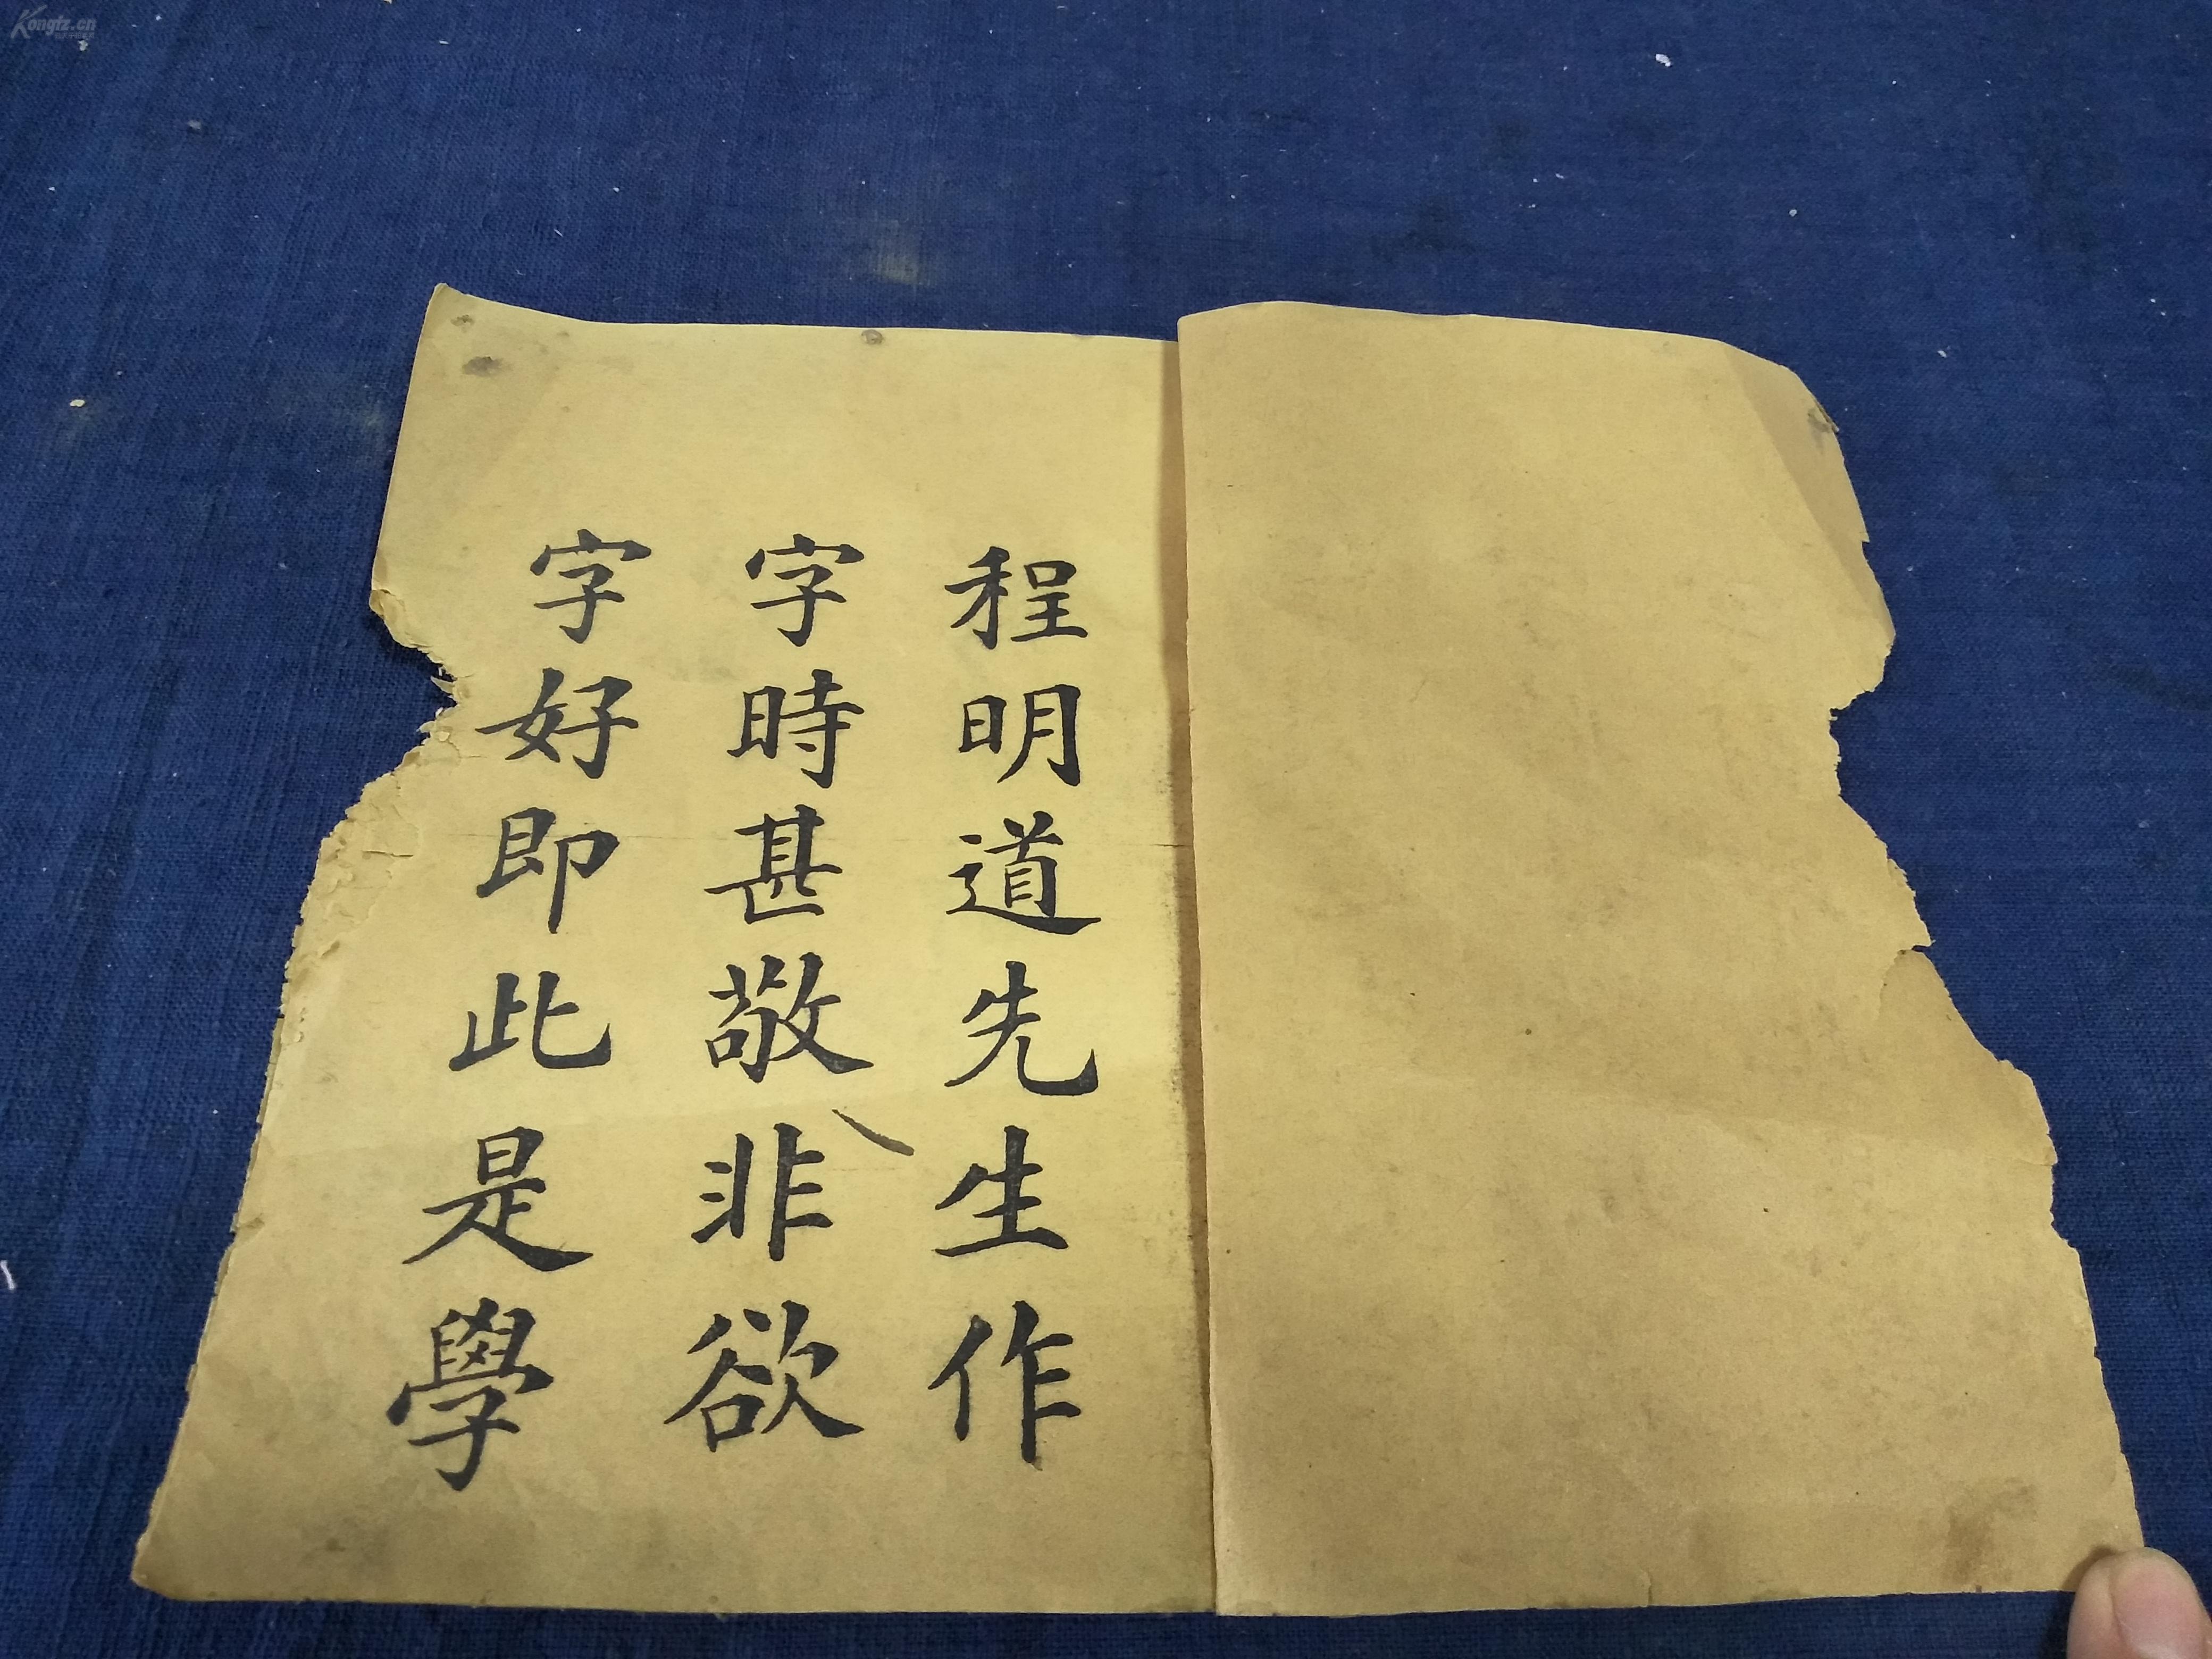 程明道先生作
字時甚敬非欲
字好即此是學
Kongfz.cn